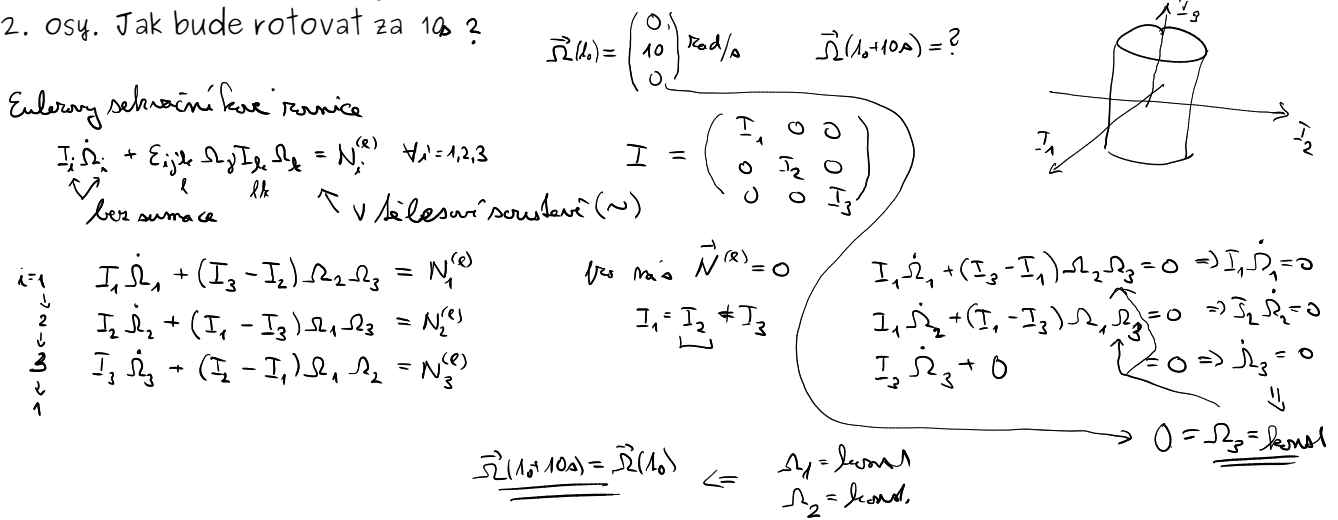 2. osy. Jak bude rotovat za 10s ?
Ω⃗(t₀) = (0, 10, 0) rad/s   Ω⃗(t₀+10s) = ?
I₃
I₁
I₂
Eulerovy setrvačníkové rovnice
IᵢΩ̇ᵢ + εᵢⱼₖ Ωⱼ Iₖ Ωₖ = Nᵢ⁽ᵉ⁾   ∀i = 1,2,3
l   lk
bez sumace
↖ v tělesové soustavě (~)
I = (I₁ 0 0
0 I₂ 0
0 0 I₃)
i=1   I₁Ω̇₁ + (I₃ − I₂) Ω₂Ω₃ = N₁⁽ᵉ⁾
↓
2   I₂Ω̇₂ + (I₁ − I₃) Ω₁Ω₃ = N₂⁽ᵉ⁾
↓
3   I₃Ω̇₃ + (I₂ − I₁) Ω₁Ω₂ = N₃⁽ᵉ⁾
↓
1
pro nás N⃗⁽ᵉ⁾ = 0
I₁ = I₂ ≠ I₃
I₁Ω̇₁ + (I₃ − I₁) Ω₂Ω₃ = 0 ⇒ I₁Ω̇₁ = 0
I₁Ω̇₂ + (I₁ − I₃) Ω₁Ω₃ = 0 ⇒ I₂Ω̇₂ = 0
I₃Ω̇₃ + 0 = 0 ⇒ Ω̇₃ = 0
⇓
0 = Ω₃ = konst
Ω⃗(t₀+10s) = Ω⃗(t₀) ⇐ Ω₁ = konst
Ω₂ = konst.